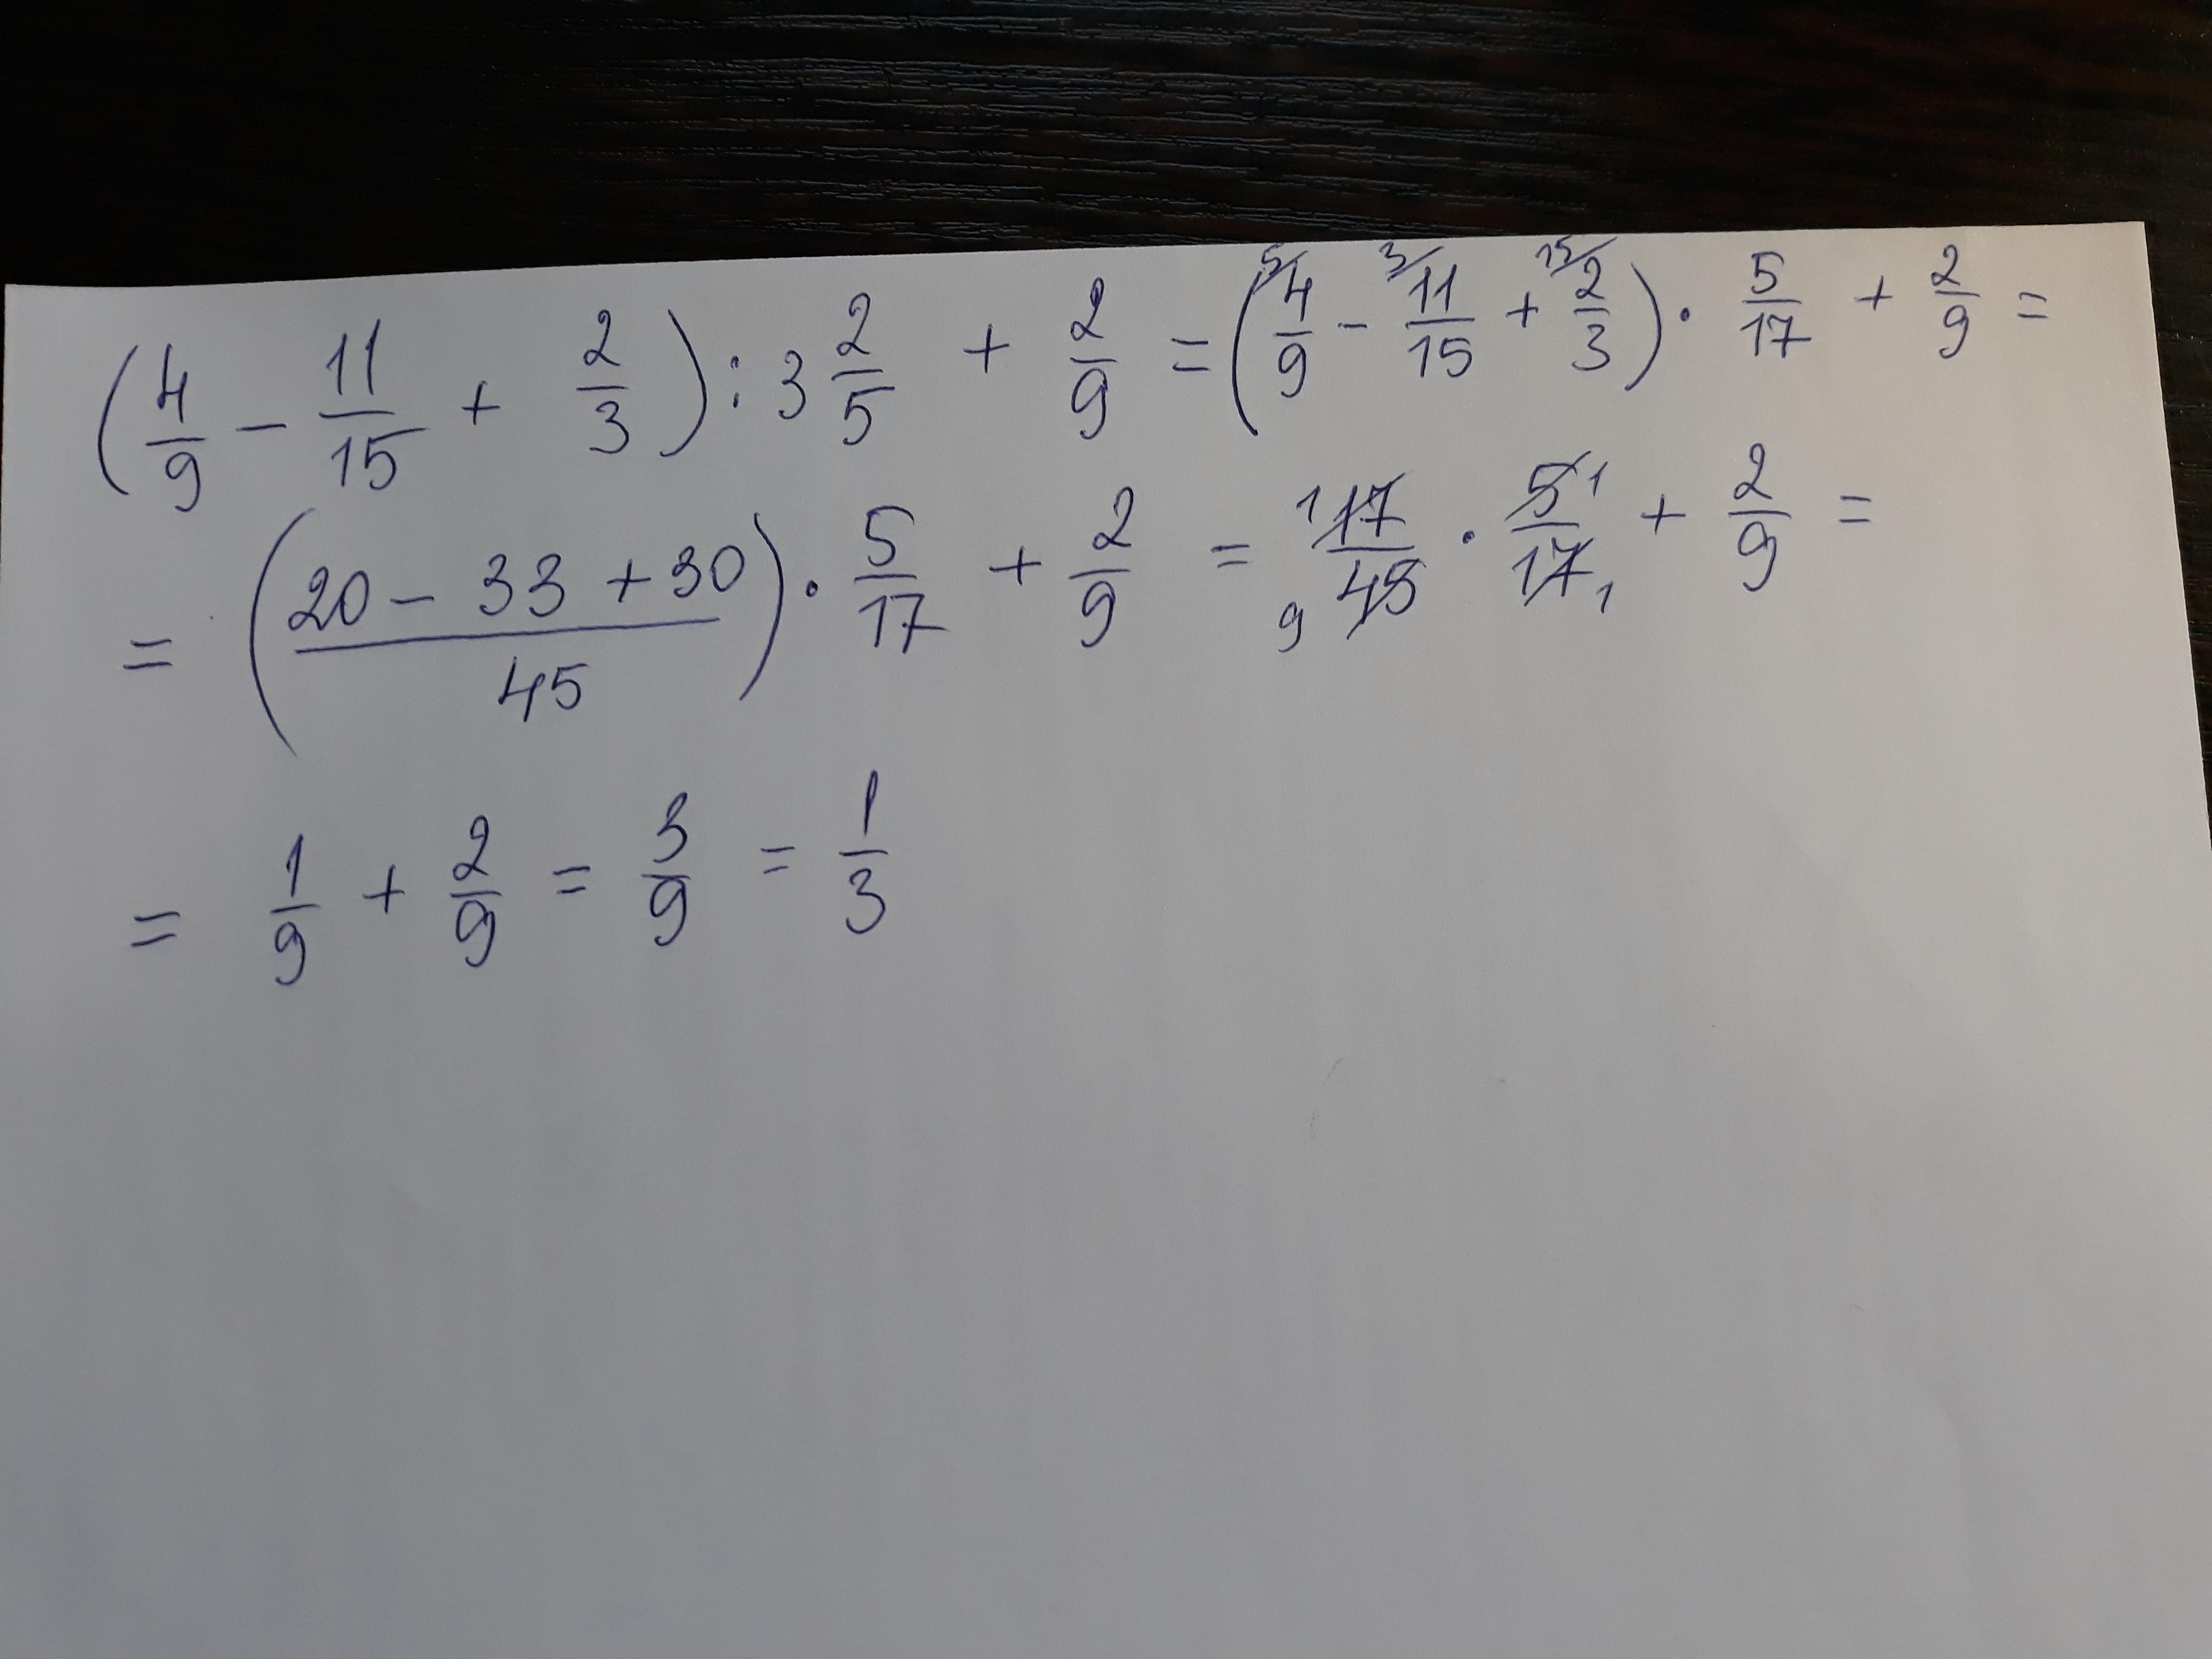 (4/9 - 11/15 + 2/3) : 3 2/5 + 2/9 = (⁵⁄4/9 - ³⁄11/15 + ¹⁵⁄2/3) · 5/17 + 2/9 =
= ((20 - 33 + 30)/45) · 5/17 + 2/9 = 1 17/45 9 · 5 1/17 1 + 2/9 =
= 1/9 + 2/9 = 3/9 = 1/3